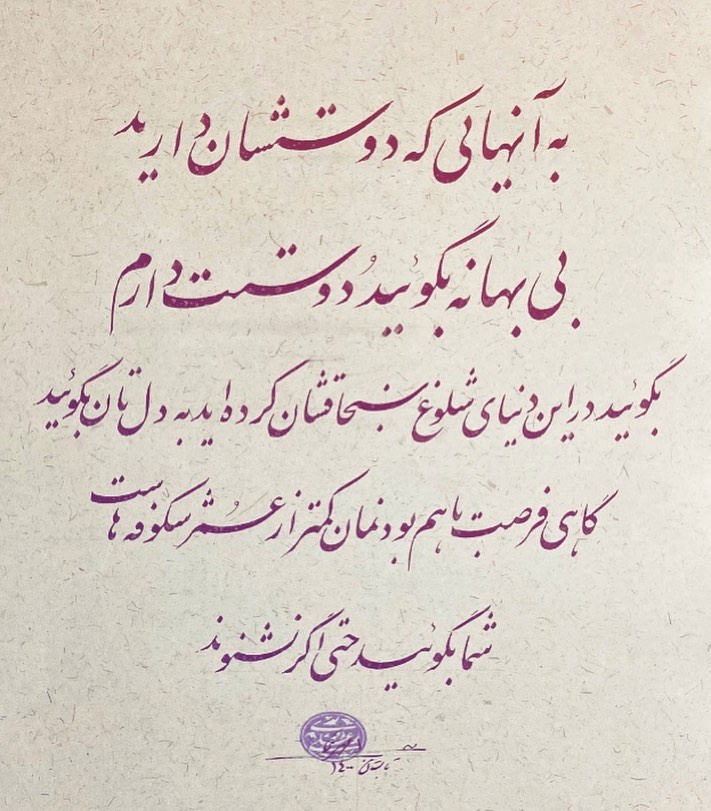 به آنهایی که دوستشان دارید
بی بهانه بگوئید دُوستت دارم
بگوئید در این دنیای شلوغ سنجاقشان کرده اید به دل تان بگوئید
گاهی فرصت با هم بودنمان کمتر از عُمر شکوفه هاست
شما بگوئید حتی اگر نشنوند
تابستان ۱۴۰۰